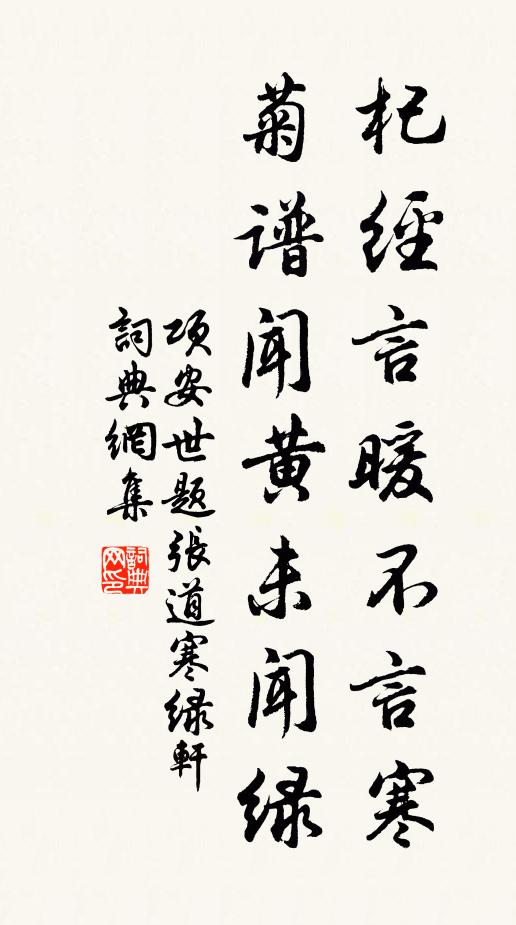 杞經言暖不言寒
菊谱闻黄未闻绿
项安世题張道寒绿軒
詞典網集
詞典網印